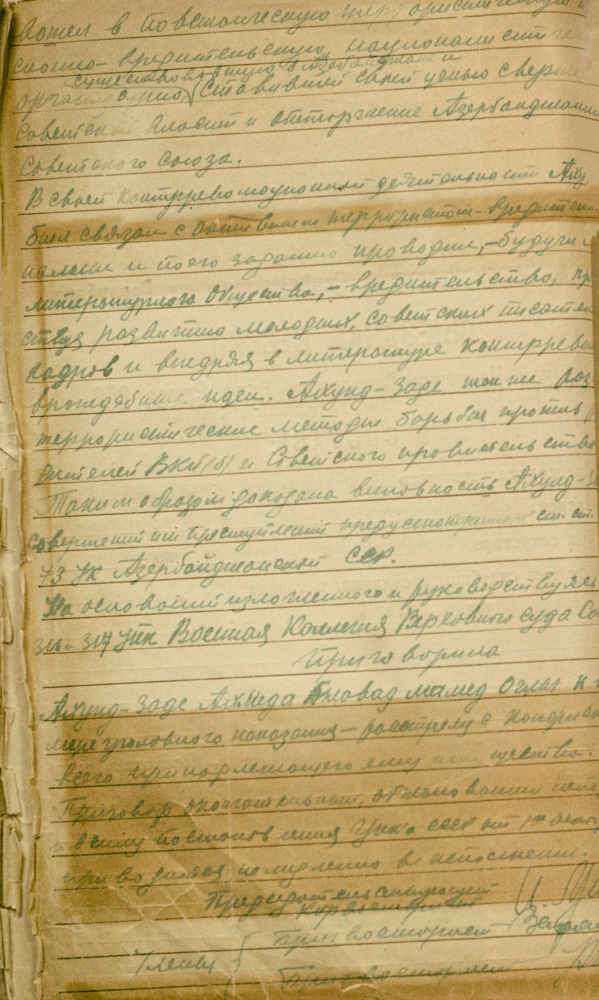 вошел в повстанческую террористическую и
вредительскую, националистиче
существовавшую в Азербайджане и
организацию, ставившей своей целью сверже
советской власти и отторжение Азербайджана
Советского Союза.
В своей контрреволюционной деятельности Аху
был связан с активным террористом-вредителе
и по его заданию проводил, – будучи
литературного общества, – вредительство, пр
ствуя развитию молодых, советских писател
кадров и внедряя в литературе контррево
враждебные идеи. Ахунд-Заде также раз
террористические методы борьбы против
вителей ВКП(б) и Советского правительства
Таким образом доказана виновность Ахунд-З
совершении им преступлений предусмотренных ст. ст.
73 УК Азербайджанской ССР.
На основании изложенного и руководствуясь
и 317 УПК Военная Коллегия Верховного Суда Со
приговорила
Ахунд-Заде Ахмеда Джавад Мамед Оглы к
мере уголовного наказания – расстрелу с конфиска
всего принадлежащего ему имущества.
Приговор окончательный, обжалованию
в силу постановления ЦИК СССР от 1го
приводится немедленно в исполнение.
Председательствующий
Корвоенюрист
Бригвоенюрист
Члены {
Бригвоенюрист